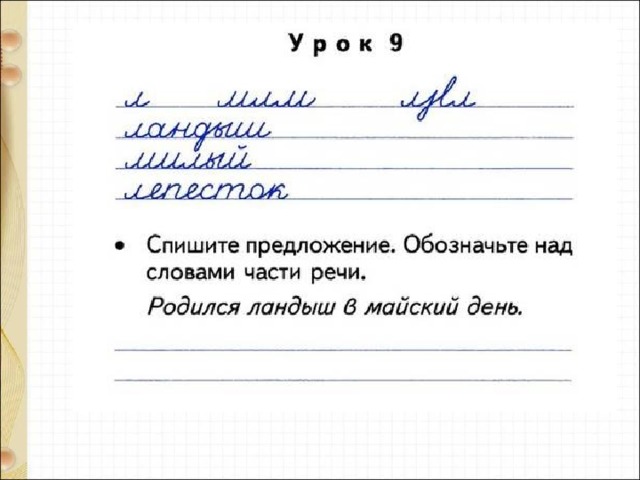 Урок 9
л млм лзвл
ландыш
милый
лепесток
• Спишите предложение. Обозначьте над
словами части речи.
Родился ландыш в майский день.